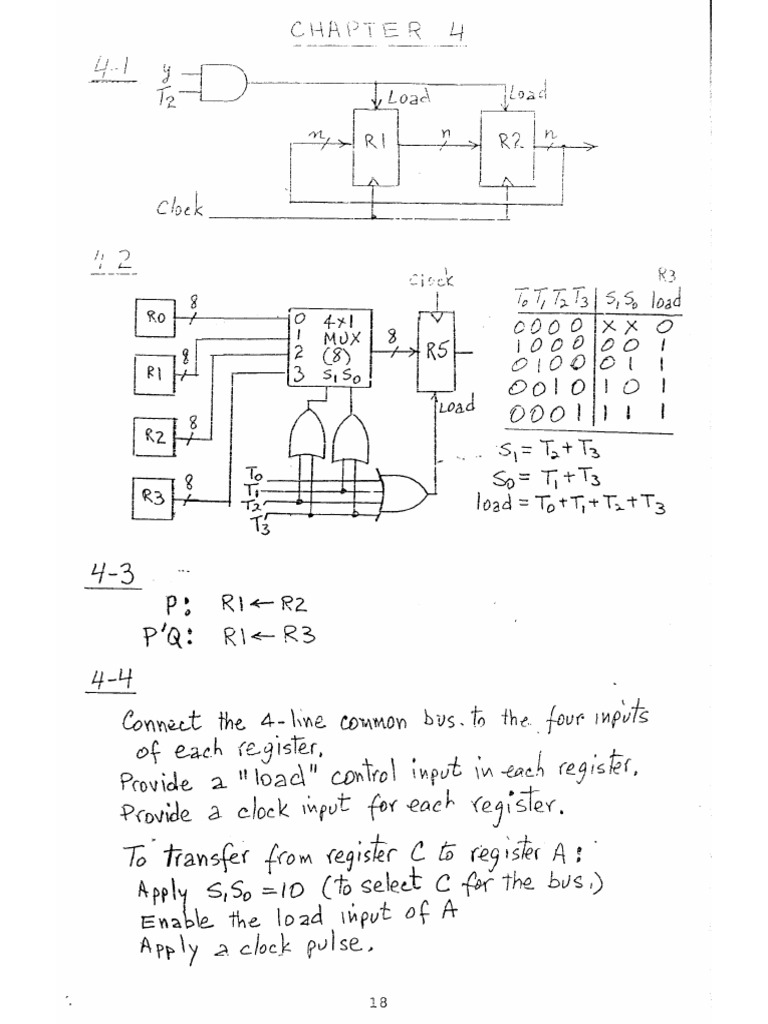 CHAPTER 4
4-1
y
T2
Load
Load
n
R1
n
R2
n
Clock
4-2
Clock
R3
T0 T1 T2 T3 S1 S0 load
0 0 0 0 X X 0
1 0 0 0 0 0 1
0 1 0 0 0 1 1
0 0 1 0 1 0 1
0 0 0 1 1 1 1
R0 8
0 4x1
1 MUX
2 (8)
3 S1 S0
8
R5
R1 8
Load
R2 8
S1 = T2 + T3
S0 = T1 + T3
load = T0 + T1 + T2 + T3
R3 8
T0
T1
T2
T3
4-3
P: R1 ← R2
P'Q: R1 ← R3
4-4
Connect the 4-line common bus. to the four inputs
of each register.
Provide a "load" control input in each register.
Provide a clock input for each register.
To transfer from register C to register A:
Apply S1 S0 = 10 (to select C for the bus.)
Enable the load input of A
Apply a clock pulse.
18